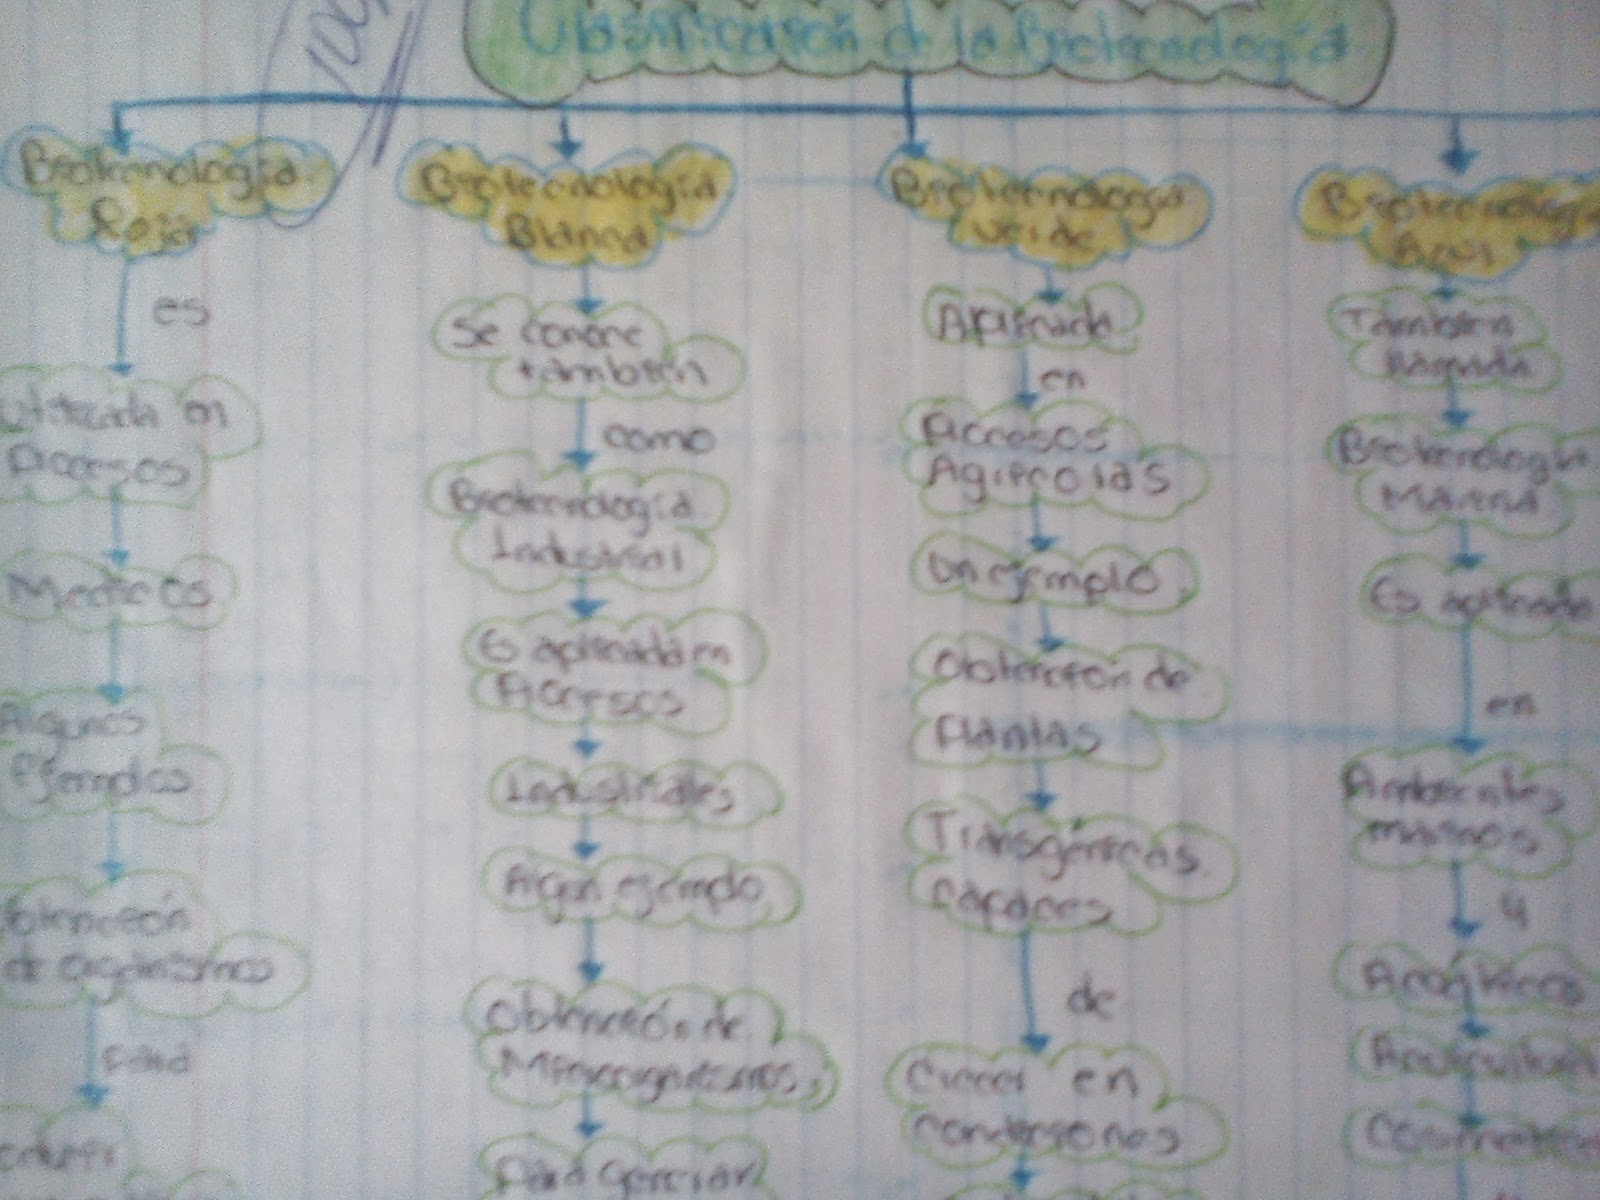 Clasificación de la Biotecnología
100
Biotecnología
Roja
es
Utilizada en
Procesos
Medicos
Algunos
Ejemplos
Obtención
de organismos
para
Biotecnología
Blanca
Se conoce
también
como
Biotecnología
Industrial
Es aplicada en
Procesos
Industriales
Algun ejemplo
Obtención de
Microorganismos,
para generar
Biotecnología
verde
Aplicada
en
Procesos
Agrícolas
Un ejemplo
Obtención de
Plantas
Transgénicas
Capaces
de
Crecer en
Condiciones
Biotecnología
Azul
También
llamada
Biotecnología
Marina
Es aplicada
en
Ambientes
marinos
y
Acuáticos
Acuicultura